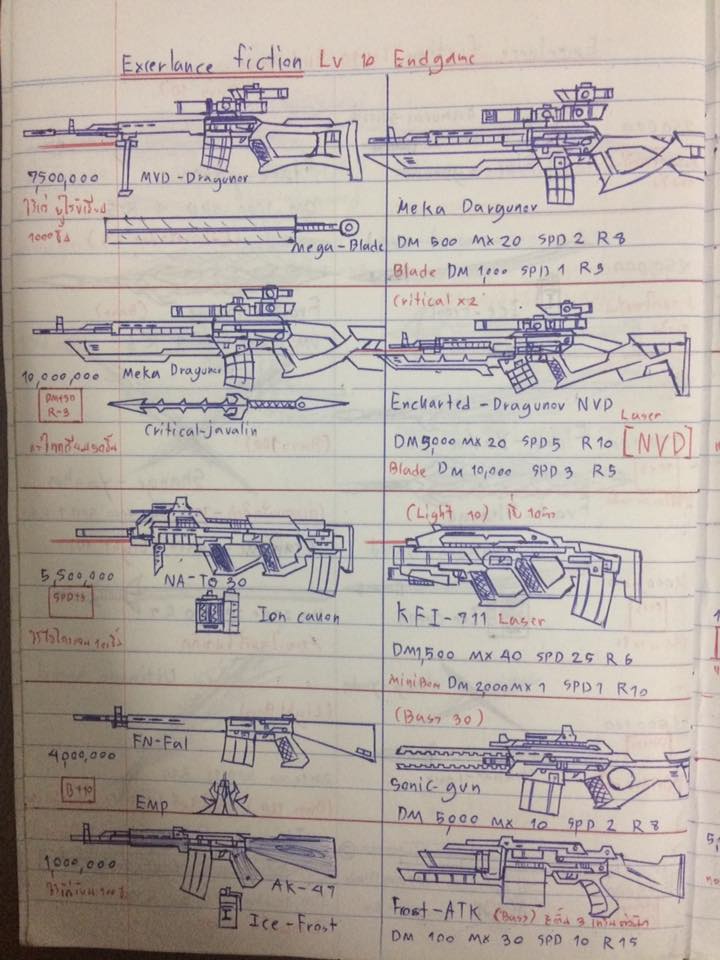 Excerlance fiction Lv 10 Endgame
7,500,000
MVD-Dragunov
1000
Mega-Blade
Meka Dargunov
DM 500 MX 20 SPD 2 R 8
Blade DM 1,000 SPD 1 R 3
Critical x2
10,000,000
Meka Dragunov
R-3
Critical-javalin
Encharted-Dragunov NVD
Laser
DM 5,000 MX 20 SPD 5 R 10 [NVD]
Blade DM 10,000 SPD 3 R 5
5,500,000
NA-TO 30
Ion canon
(Light 10)
KFI-711 Laser
DM 1,500 MX 40 SPD 25 R 6
MiniBom DM 2000 MX 1 SPD 1 R 10
4,000,000
FN-Fal
B+10
Emp
(Bass 30)
Sonic-gun
DM 5000 MX 10 SPD 2 R 8
1,000,000
AK-47
Ice-Frost
Frost-ATK (Bass)
DM 100 MX 30 SPD 10 R 15